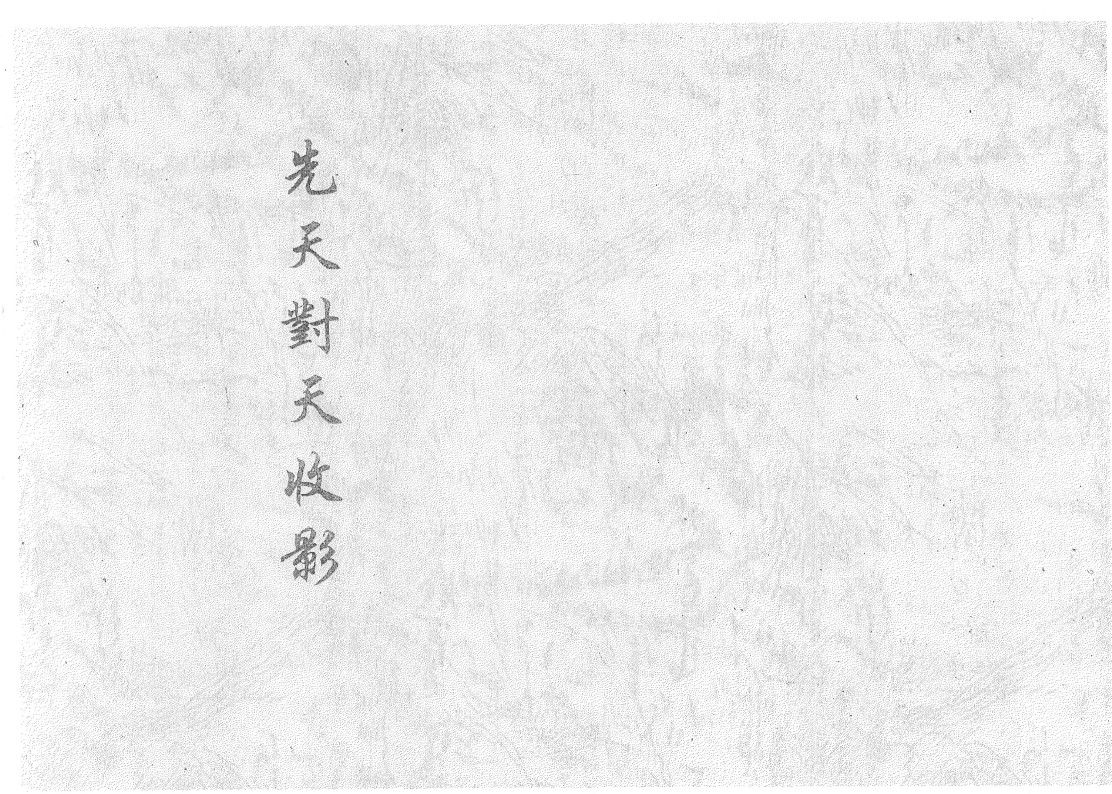 先天對天收影